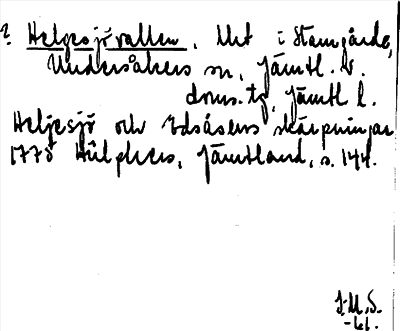 ? Helgesjövallen. Ut i Stamgärde,
Undersåkers sn, Jämtl. v.
doms.tg, Jämtl l.
Heljesjö och Edsåsens skärpningar
1775 Hülphers, Jämtland, s. 144.
J.M.S.